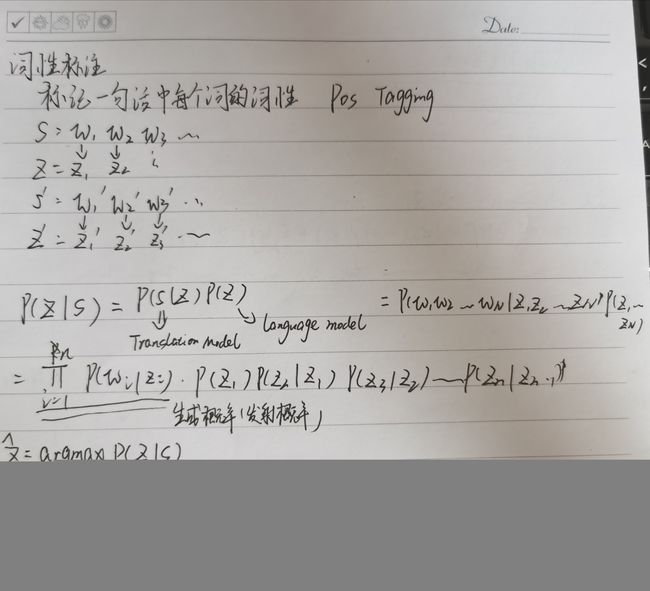 Date:
词性标注
标记一句话中每个词的词性 Pos Tagging
S = w₁ w₂ w₃ ...
↓ ↓
Z = z₁ z₂ ...
S' = w₁' w₂' w₃' ...
↓ ↓ ↓
Z' = z₁' z₂' z₃' ...
P(Z|S) = P(S|Z) P(Z) = P(w₁w₂...w_N|z₁z₂...z_N) P(z₁...z_N)
Translation model Language model
= ∏ᵢ₌₁ⁿ P(wᵢ|zᵢ) · P(z₁) P(z₂|z₁) P(z₃|z₂) ... P(z_n|z_{n-1})
生成概率(发射概率)
ẑ = argmax P(Z|S)